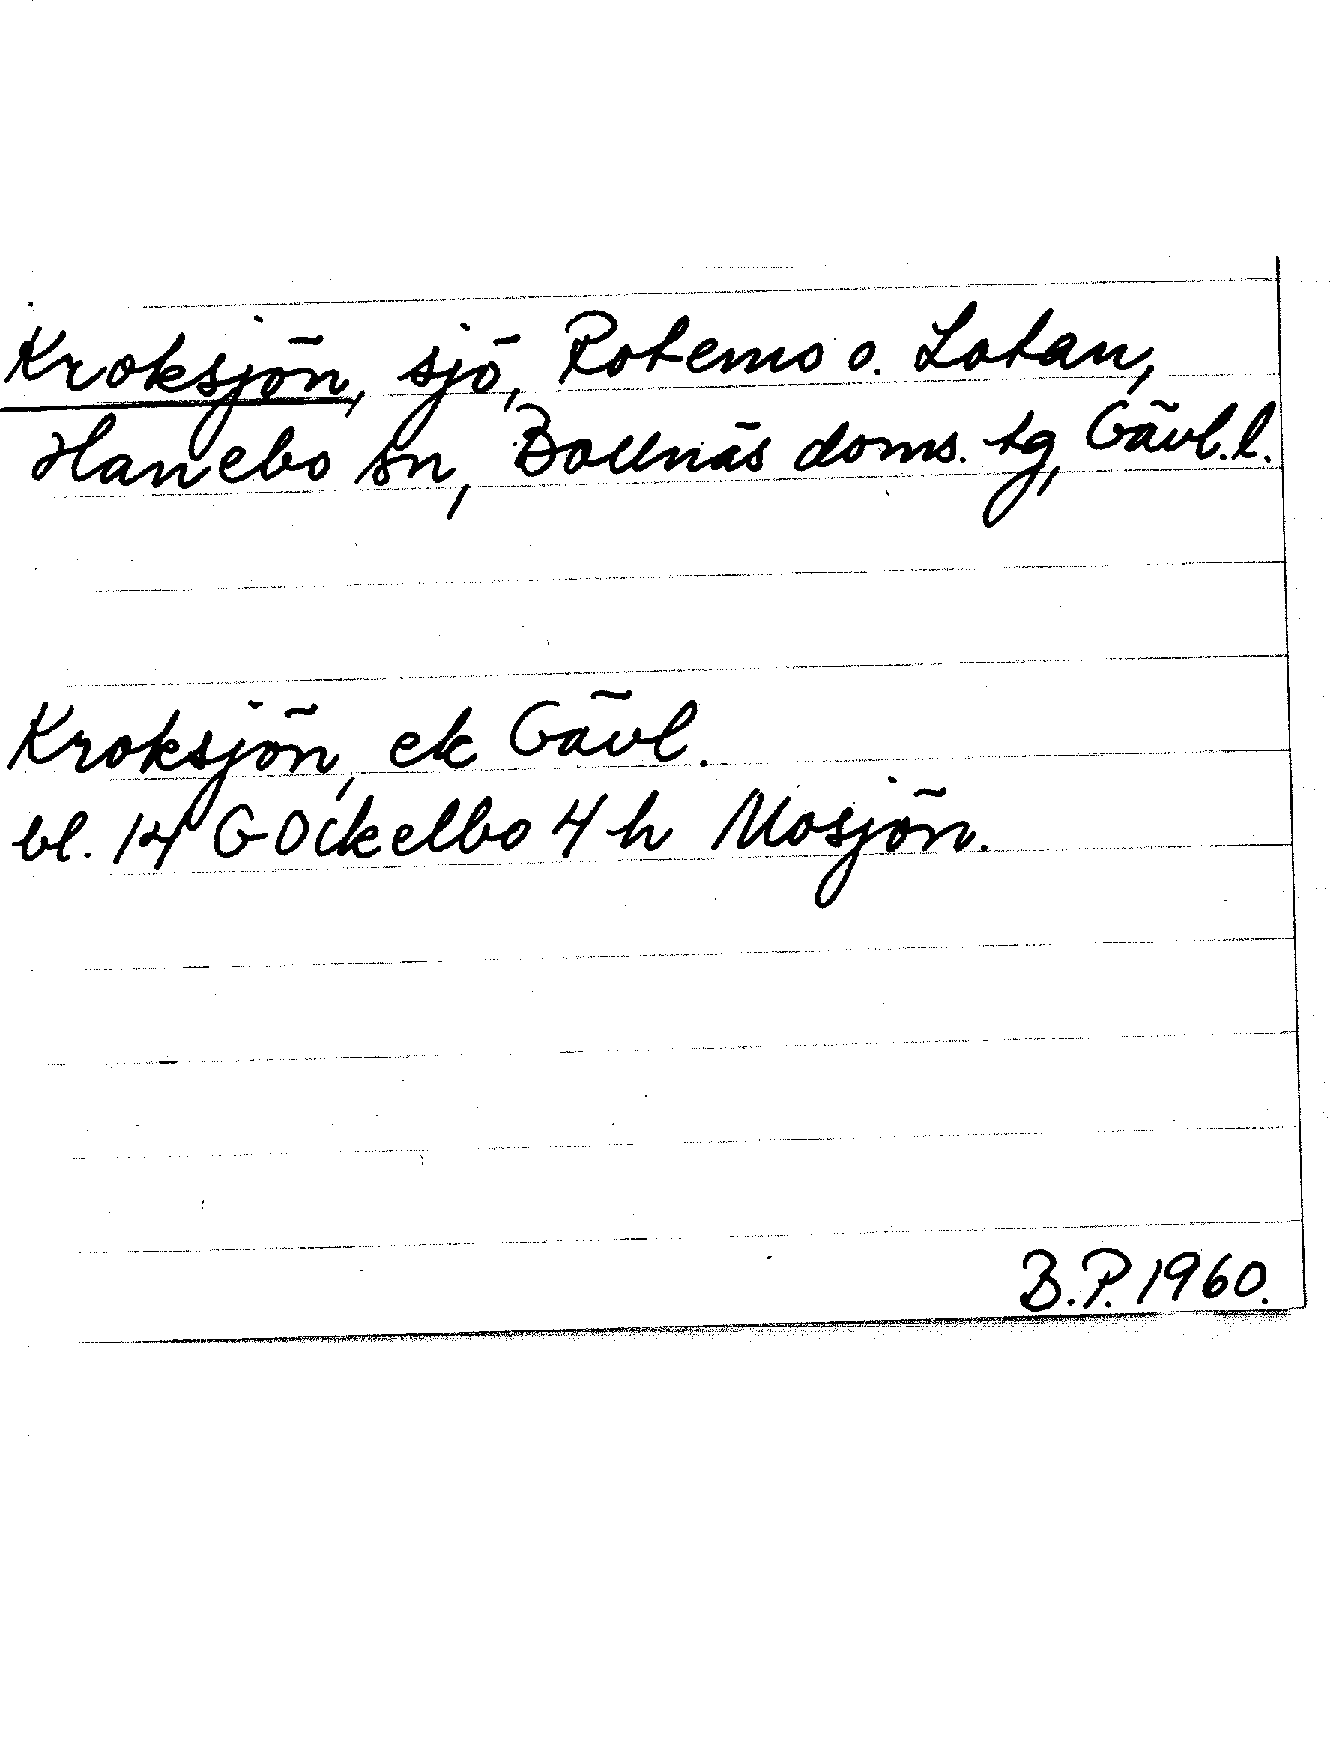 Kroksjön, sjö, Rotemo o. Lotan,
Hanebo sn, Bollnäs doms. tg, Gävl.l.
Kroksjön, ek Gävl.
bl. 14 G Ockelbo 4 h Mosjön.
B.P. 1960.